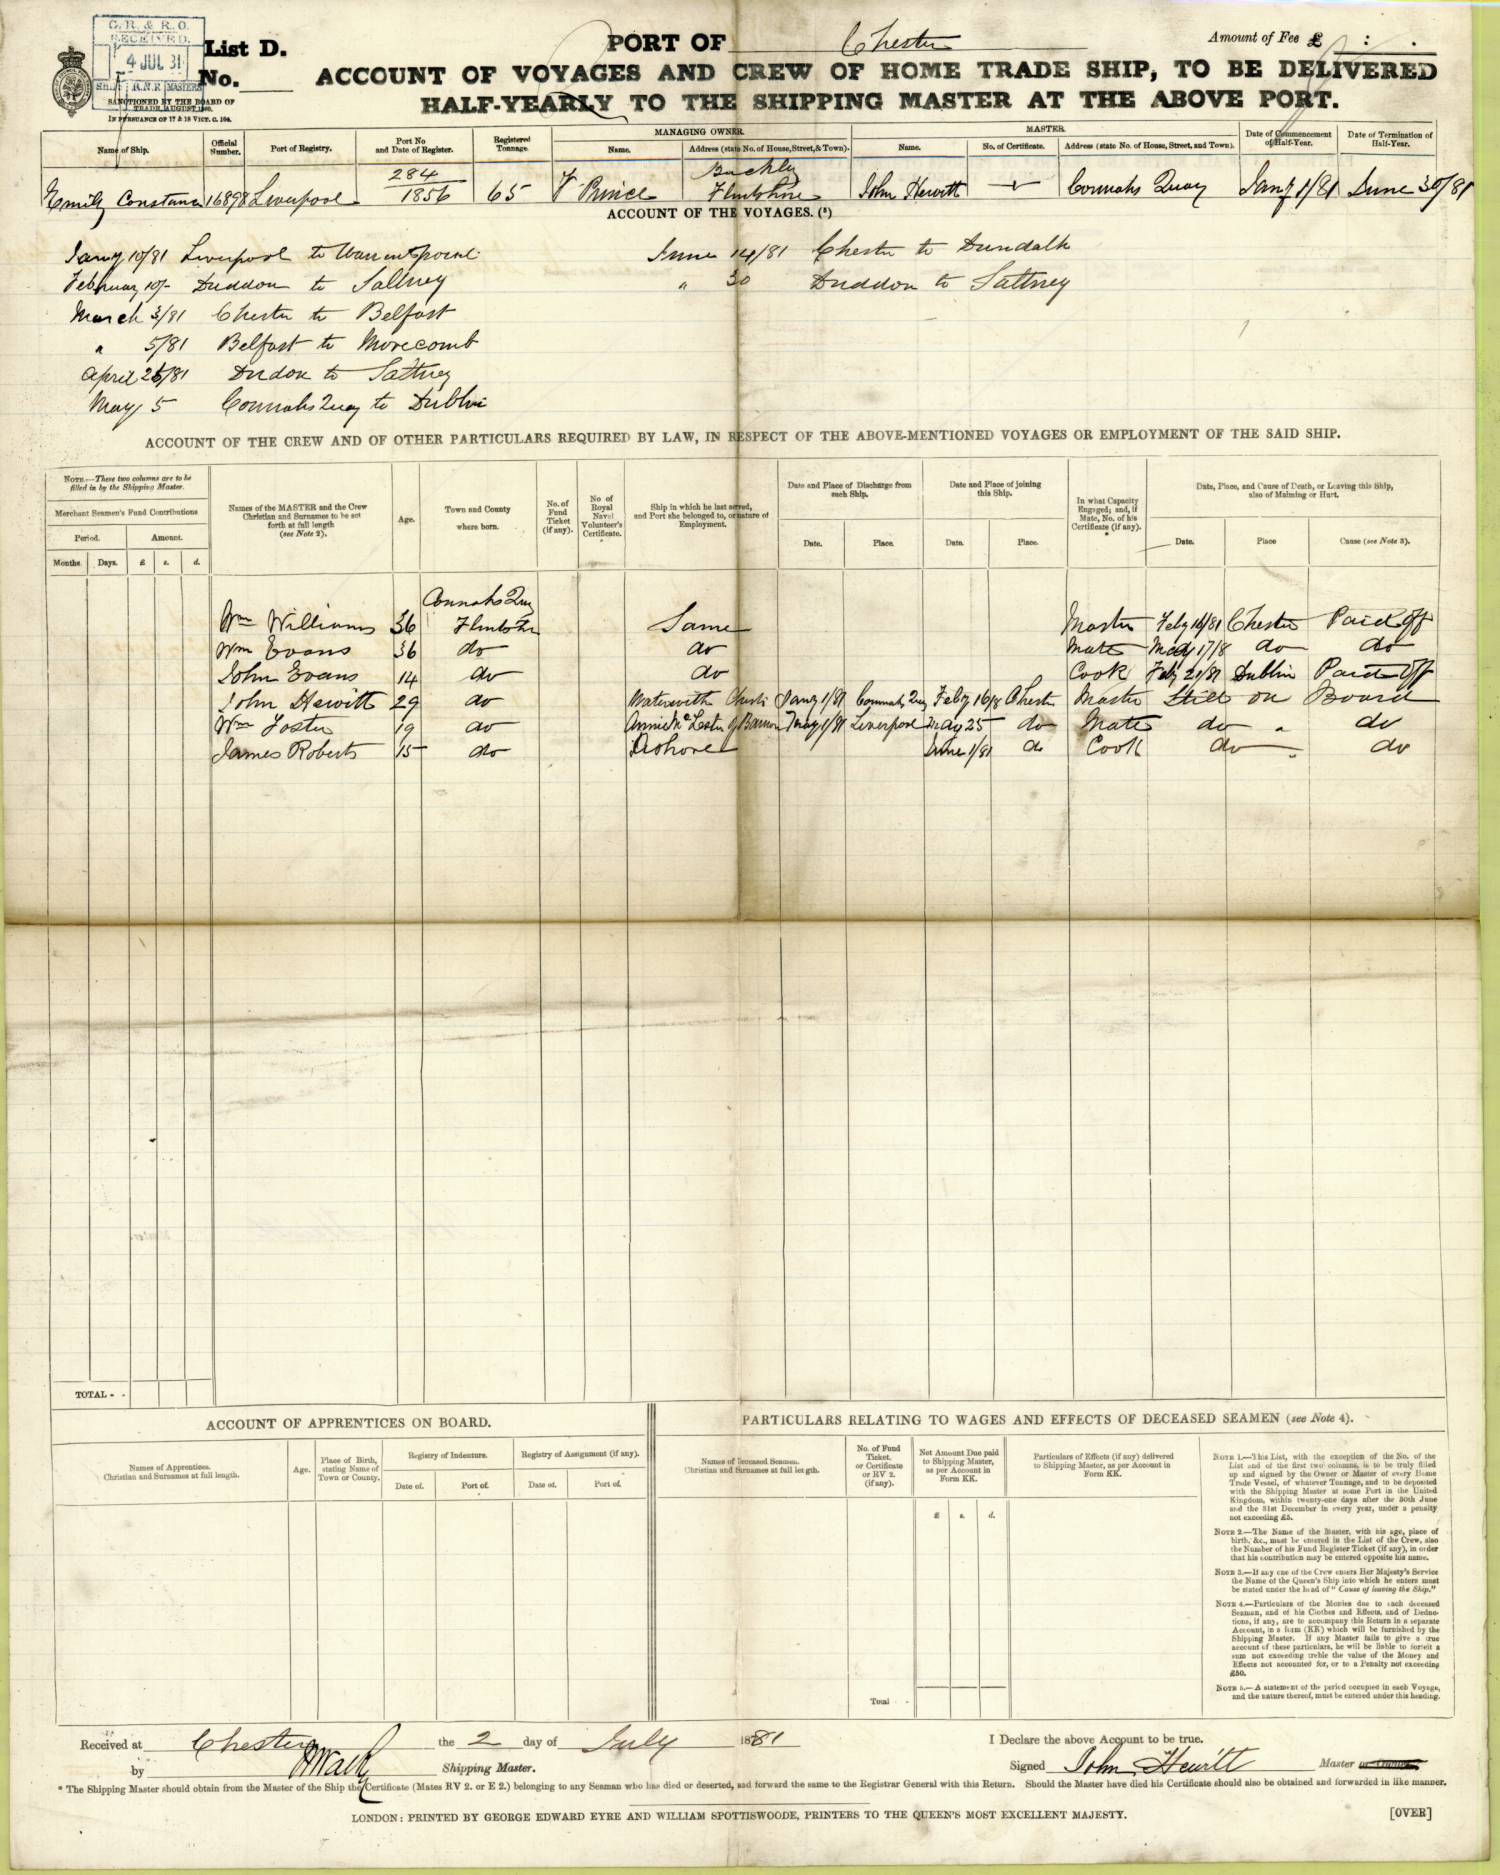 G. R. & R. O.
RECEIVED.
4 JUL 81
R.N.R MASTERS
SANCTIONED BY THE BOARD OF
TRADE, AUGUST
IN PURSUANCE OF 17 & 18 VICT. C. 104.
List D.
No.
PORT OF Chester
Amount of Fee £ : .
ACCOUNT OF VOYAGES AND CREW OF HOME TRADE SHIP, TO BE DELIVERED
HALF-YEARLY TO THE SHIPPING MASTER AT THE ABOVE PORT.
Name of Ship. Official Number. Port of Registry. Port No and Date of Register. Registered Tonnage. MANAGING OWNER. Name. Address (state No. of House, Street, & Town). MASTER. Name. No. of Certificate. Address (state No. of House, Street, and Town). Date of Commencement of Half-Year. Date of Termination of Half-Year.
Emily Constance 16898 Liverpool 284/1856 65 F Prince Buckley Flintshire John Hewitt Connahs Quay Jany 1/81 June 30/81
ACCOUNT OF THE VOYAGES. (5)
Jany 10/81 Liverpool to Warrentpoint
February 10/- Duddon to Saltney
March 3/81 Chester to Belfast
" 5/81 Belfast to Morecomb
April 26/81 Dudon to Saltney
May 5 Connahs Quay to Dublin
June 14/81 Chester to Dundalk
" 30 Duddon to Saltney
ACCOUNT OF THE CREW AND OF OTHER PARTICULARS REQUIRED BY LAW, IN RESPECT OF THE ABOVE-MENTIONED VOYAGES OR EMPLOYMENT OF THE SAID SHIP.
NOTE.—These two columns are to be filled in by the Shipping Master.
Merchant Seamen's Fund Contributions
Period. Amount.
Months. Days. £ s. d.
Names of the MASTER and the Crew Christian and Surnames to be set forth at full length (see Note 2).
Age.
Town and County where born.
No. of Fund Ticket (if any).
No of Royal Naval Volunteer's Certificate.
Ship in which he last served, and Port she belonged to, or nature of Employment.
Date and Place of Discharge from such Ship.
Date. Place.
Date and Place of joining this Ship.
Date. Place.
In what Capacity Engaged; and, if Mate, No. of his Certificate (if any).
Date, Place, and Cause of Death, or Leaving this Ship, also of Maiming or Hurt.
Date. Place Cause (see Note 3).
Connahs Quay
Wm Williams 36 Flintshr Same Master Feby 16/81 Chester Paid Off
Wm Evans 36 do do Mate May 17/8 do do
John Evans 14 do do Cook Feby 21/81 Dublin Paid Off
John Hewitt 29 do Chestr Jany 1/81 Connahs Quy Feby 16/8 Chester Master Still on Board
Wm Foster 19 do Annie Mc Lester of Barrow May 1/81 Liverpool May 25 do Mate do " do
James Roberts 15 do Ashore June 1/81 do Cook do " do
TOTAL - -
ACCOUNT OF APPRENTICES ON BOARD.
Names of Apprentices. Christian and Surnames at full length.
Age.
Place of Birth, stating Name of Town or County.
Registry of Indenture.
Date of. Port of.
Registry of Assignment (if any).
Date of. Port of.
PARTICULARS RELATING TO WAGES AND EFFECTS OF DECEASED SEAMEN (see Note 4).
Names of Deceased Seamen. Christian and Surnames at full length.
No. of Fund Ticket, or Certificate or RV 2. (if any).
Net Amount Due paid to Shipping Master, as per Account in Form KK.
£ s. d.
Particulars of Effects (if any) delivered to Shipping Master, as per Account in Form KK.
Total -
NOTE 1.—This List, with the exception of the No. of the
List and of the first two columns, is to be truly filled
up and signed by the Owner or Master of every Home
Trade Vessel, of whatever Tonnage, and to be deposited
with the Shipping Master at some Port in the United
Kingdom, within twenty-one days after the 30th June
and the 31st December in every year, under a penalty
not exceeding £5.
NOTE 2.—The Name of the Master, with his age, place of
birth, &c., must be entered in the List of the Crew, also
the Number of his Fund Register Ticket (if any), in order
that his contribution may be entered opposite his name.
NOTE 3.—If any one of the Crew enters Her Majesty's Service
the Name of the Queen's Ship into which he enters must
be stated under the head of "Cause of leaving the Ship."
NOTE 4.—Particulars of the Monies due to each deceased
Seaman, and of his Clothes and Effects, and of Deduc-
tions, if any, are to accompany this Return in a separate
Account, in a form (KK) which will be furnished by the
Shipping Master. If any Master fails to give a true
account of these particulars, he will be liable to forfeit a
sum not exceeding treble the value of the Money and
Effects not accounted for, or to a Penalty not exceeding
£50.
NOTE 5.—A statement of the period occupied in each Voyage,
and the nature thereof, must be entered under this heading.
Received at Chester the 2 day of July 1881
by Shipping Master.
I Declare the above Account to be true.
Signed John Hewitt Master or Owner
* The Shipping Master should obtain from the Master of the Ship the Certificate (Mates RV 2. or E 2.) belonging to any Seaman who has died or deserted, and forward the same to the Registrar General with this Return. Should the Master have died his Certificate should also be obtained and forwarded in like manner.
LONDON: PRINTED BY GEORGE EDWARD EYRE AND WILLIAM SPOTTISWOODE, PRINTERS TO THE QUEEN'S MOST EXCELLENT MAJESTY.
[OVER]